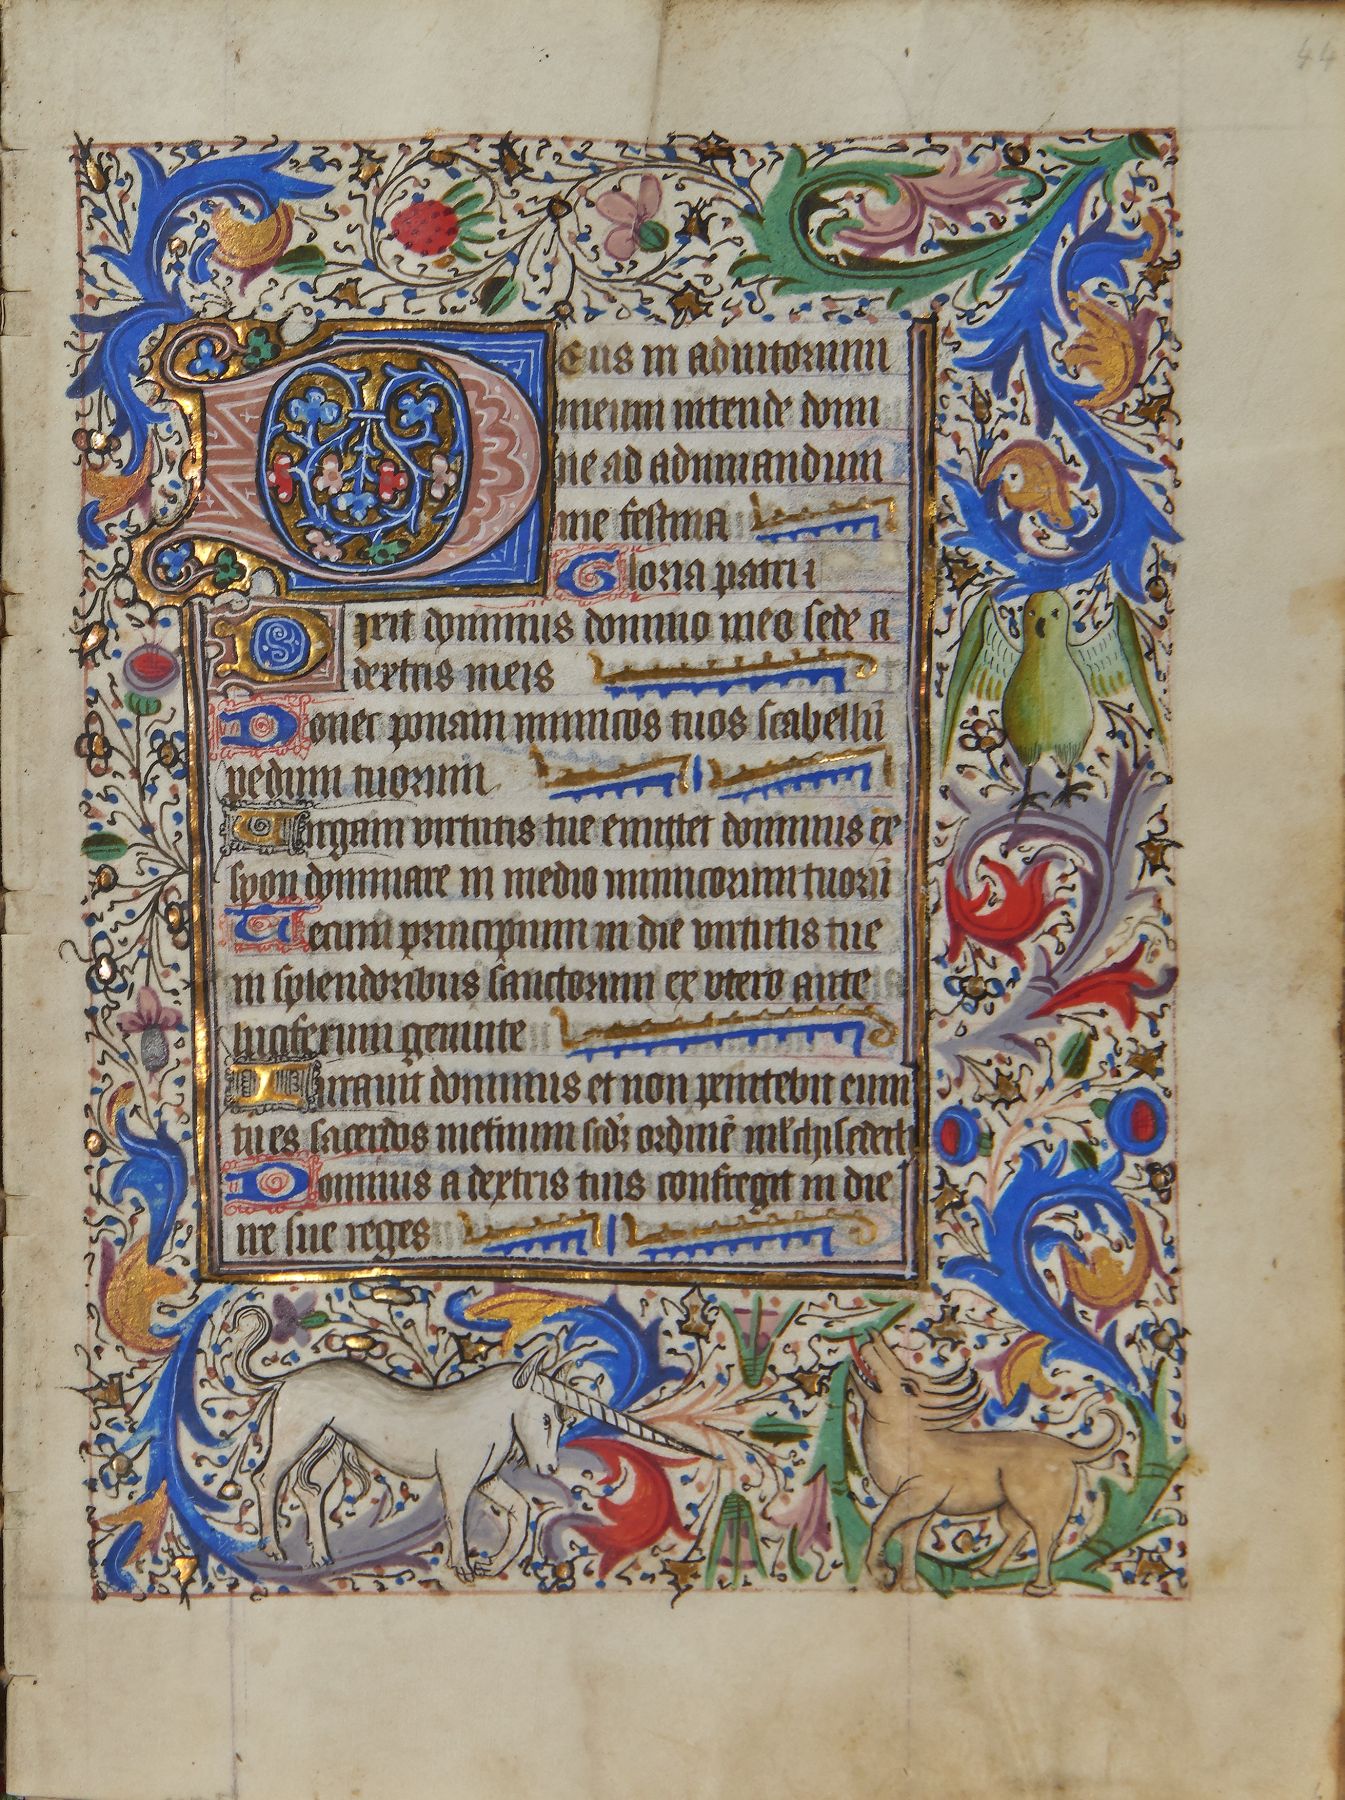 44
Deus in adiutorium
meum intende domi
ne ad adiuuandum
me festina
Gloria patri
Dixit dominus domino meo sede a
dextris meis
Donec ponam inimicos tuos scabellū
pedum tuorum
Uirgam virtutis tue emittet dominus ex
syon dominare in medio inimicorum tuorū
Tecum principium in die virtutis tue
in splendoribus sanctorum ex vtero ante
luciferum genui te
Iurauit dominus et non penitebit eum
tu es sacerdos
Dominus a dextris tuis confregit in die
ire sue reges